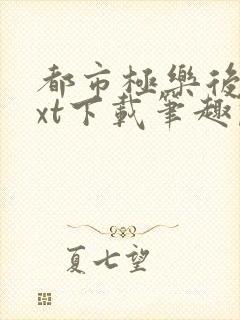 都市極樂後
xt下載筆趣
夏七望